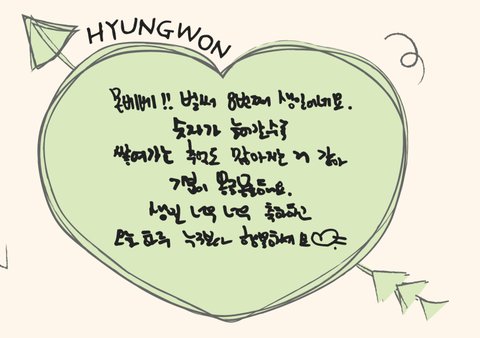 HYUNGWON
몬베베!! 벌써 8번째 생일이네요.
숫자가 늘어갈수록
쌓여가는 추억도 많아지는 거 같아
기분이 몽글몽글해요.
생일 너무 너무 축하하고
오늘 하루 누구보다 행복하세요